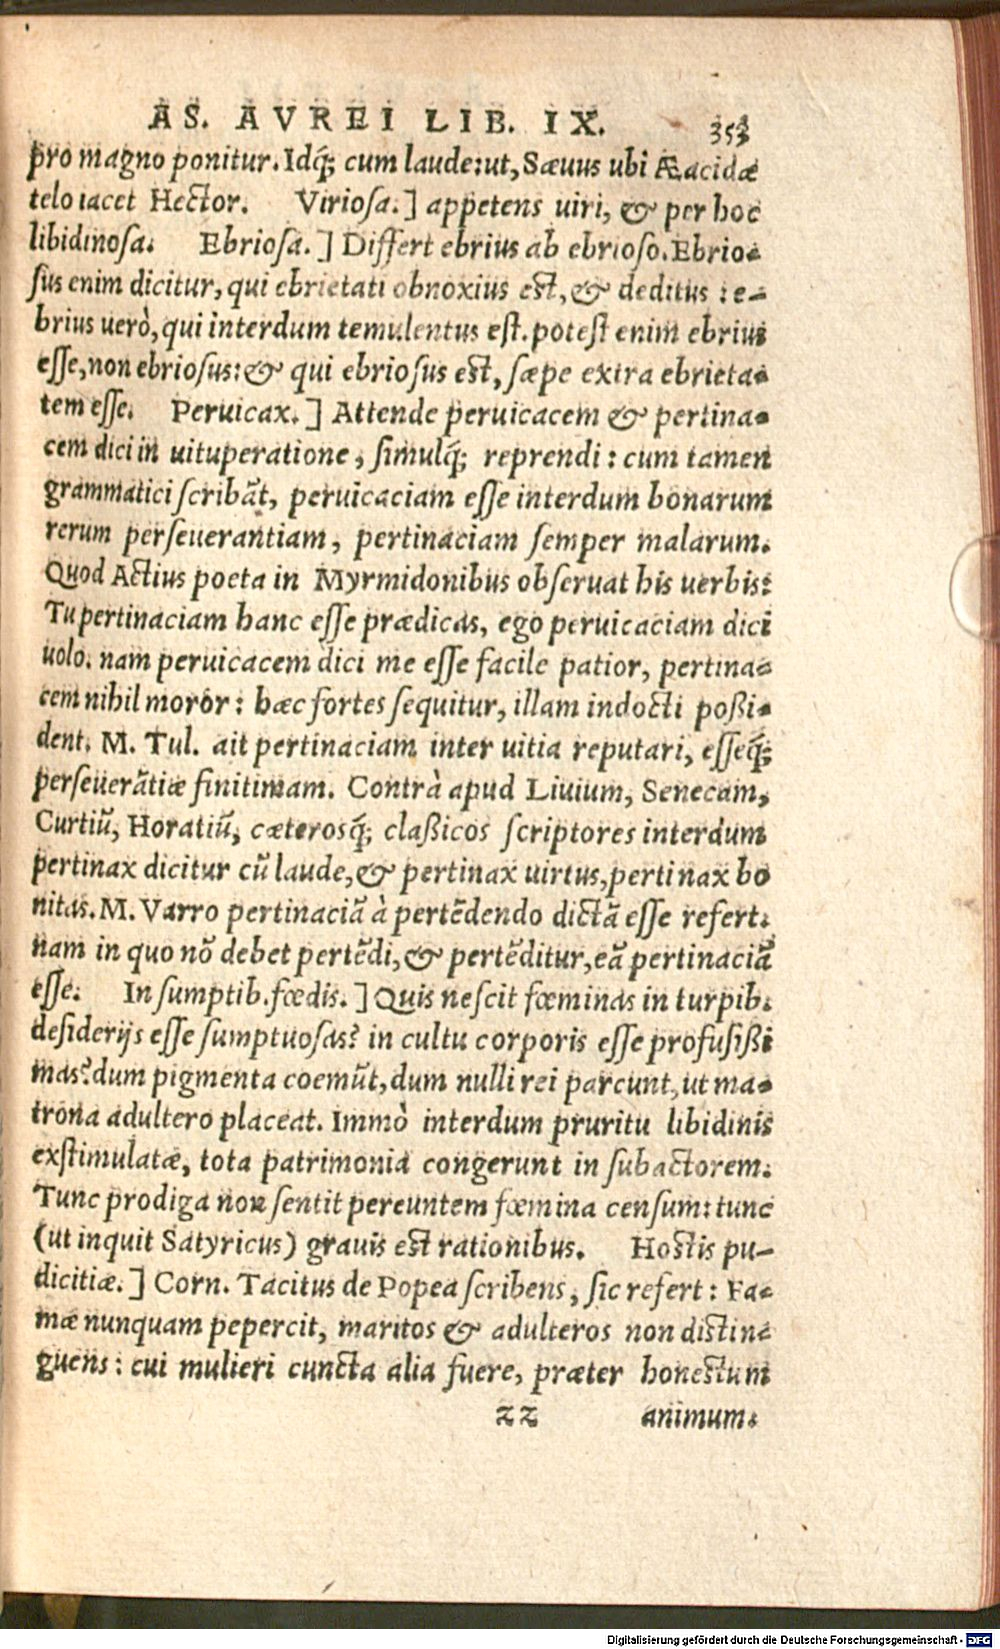 AS. AVREI LIB. IX. 353
pro magno ponitur. Idq́; cum laude: ut, Sæuus ubi Æacidæ
telo iacet Hector. Viriosa. ] appetens uiri, & per hoc
libidinosa. Ebriosa. ] Differt ebrius ab ebrioso. Ebrio-
sus enim dicitur, qui ebrietati obnoxius est, & deditus : e-
brius uerò, qui interdum temulentus est. potest enim ebrius
esse, non ebriosus: & qui ebriosus est, sæpe extra ebrieta-
tem esse. Peruicax. ] Attende peruicacem & pertina-
cem dici in uituperatione, simulq́; reprendi: cum tamen
grammatici scribãt, peruicaciam esse interdum bonarum
rerum perseuerantiam, pertinaciam semper malarum.
Quod Actius poeta in Myrmidonibus obseruat his uerbis:
Tu pertinaciam hanc esse prædicas, ego peruicaciam dici
uolo. nam peruicacem dici me esse facile patior, pertina-
cem nihil moror: hæc fortes sequitur, illam indocti poßi-
dent. M. Tul. ait pertinaciam inter uitia reputari, esseq́;
perseuerãtiæ finitimam. Contrà apud Liuium, Senecam,
Curtiũ, Horatiũ, cæterosq́; claßicos scriptores interdum
pertinax dicitur cũ laude, & pertinax uirtus, pertinax bo
nitas. M. Varro pertinaciã à pertẽdendo dictã esse refert.
nam in quo nõ debet pertẽdi, & pertẽditur, eã pertinaciã
esse. In sumptib. fœdis. ] Quis nescit fœminas in turpib.
desiderijs esse sumptuosas? in cultu corporis esse profusißi
mas? dum pigmenta coemũt, dum nulli rei parcunt, ut ma-
trona adultero placeat. Immò interdum pruritu libidinis
exstimulatæ, tota patrimonia congerunt in subactorem.
Tunc prodiga non sentit pereuntem fœmina censum: tunc
(ut inquit Satyricus) grauis est rationibus. Hostis pu-
dicitiæ. ] Corn. Tacitus de Popea scribens, sic refert: Fa-
mæ nunquam pepercit, maritos & adulteros non distin-
guens: cui mulieri cuncta alia fuere, præter honestum
zz animum.
Digitalisierung gefördert durch die Deutsche Forschungsgemeinschaft - DFG